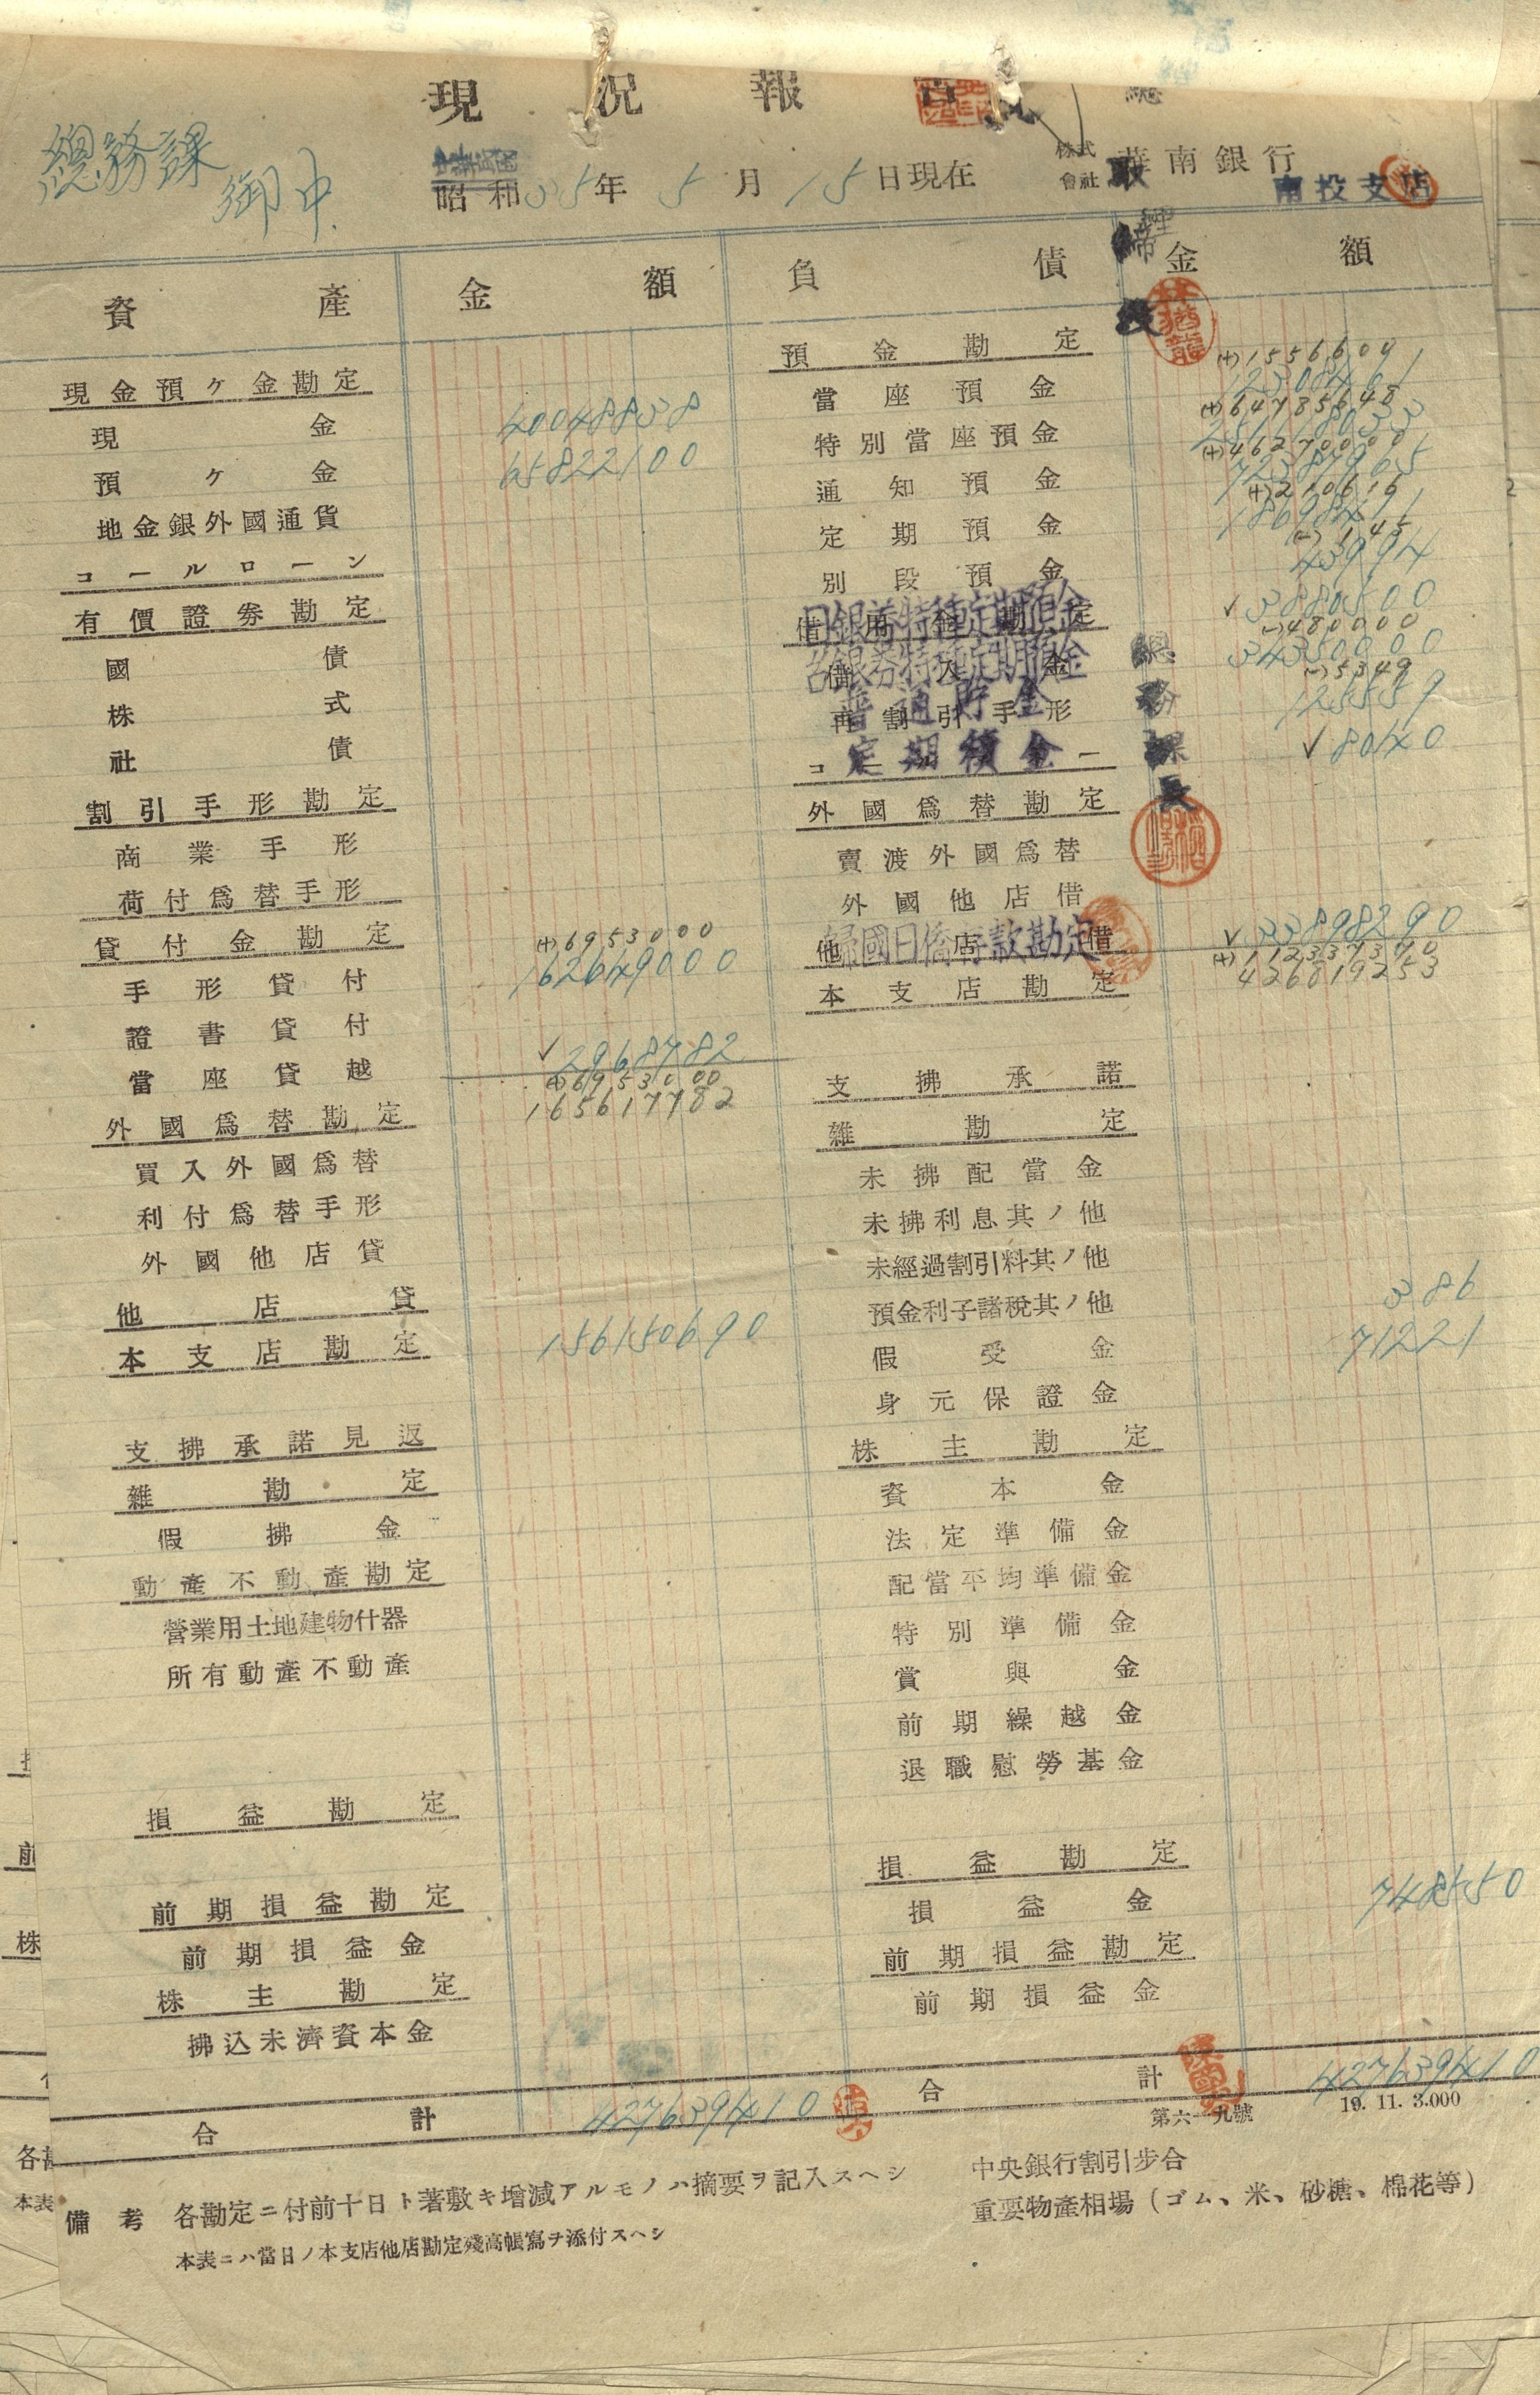 現況報告
總務課
御中
中華民國
昭和35年5月15日現在
株式會社 華南銀行
南投支店
資產 金額 負債 金額
現金預ケ金勘定
現金 40048838
預ケ金 65822100
地金銀外國通貨
コールローン
有價證券勘定
國債
株式
社債
割引手形勘定
商業手形
荷付爲替手形
貸付金勘定
(+)6953000
手形貸付 162649000
證書貸付
當座貸越 ✓2968782
(+)6953000
165617782
外國爲替勘定
買入外國爲替
利付爲替手形
外國他店貸
他店貸
本支店勘定 156150690
支拂承諾見返
雜勘定
假拂金
動產不動產勘定
營業用土地建物什器
所有動產不動產
損益勘定
前期損益勘定
前期損益金
株主勘定
拂込未濟資本金
合計 427639410
預金勘定
(+)1556600
當座預金 12308461
(+)64785648
特別當座預金
(+)46270000
通知預金
(+)210616
定期預金
(-)145
別段預金 43994
借用金勘定
日銀券特種定期預金 ✓3880500
(-)480000
借入金
台銀券特種定期預金 34350000
(-)5349
再割引手形
普通貯金 125559
定期積金 ✓80140
外國爲替勘定
賣渡外國爲替
外國他店借
他店借
歸國日僑存款勘定 ✓33898290
(+)112337370
426819253
本支店勘定
支拂承諾
雜勘定
未拂配當金
未拂利息其ノ他
未經過割引料其ノ他
預金利子諸稅其ノ他 386
假受金 71221
身元保證金
株主勘定
資本金
法定準備金
配當平均準備金
特別準備金
賞與金
前期繰越金
退職慰勞基金
損益勘定
損益金 748550
前期損益勘定
前期損益金
合計 427639410
總務課長
林猶龍
第六一九號 19. 11. 3.000
備考 各勘定ニ付前十日ト著敷キ增減アルモノハ摘要ヲ記入スヘシ
本表ニハ當日ノ本支店他店勘定殘高帳寫ヲ添付スヘシ
中央銀行割引步合
重要物產相場（ゴム、米、砂糖、棉花等）